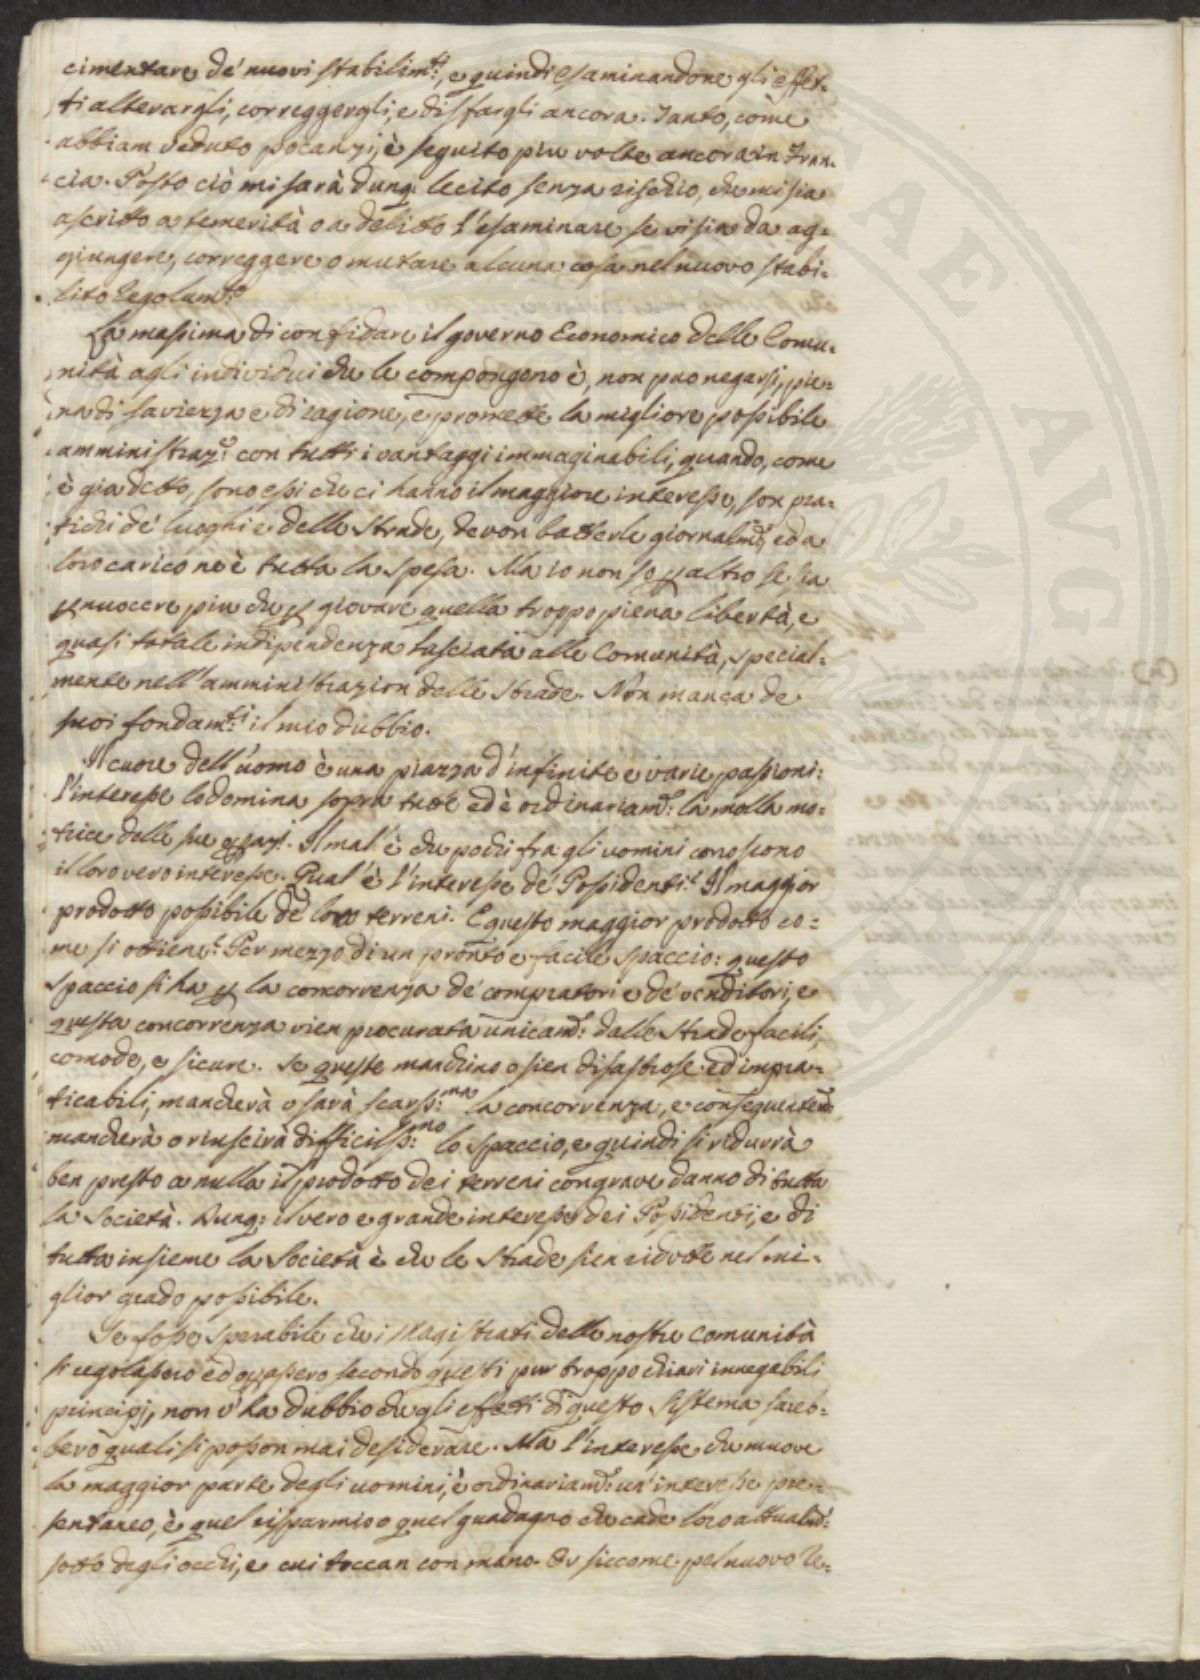 cimentare de' nuovi stabilim.ti, e quindi esaminandone gli effet-
ti alterargli, correggergli, e disfargli ancora. Tanto, come
abbiam veduto pocanzi, è seguito piu volte ancora in Fran-
cia. Posto ciò mi sarà dunq: lecito senza rischio, che mi sia
ascritto a temerità o a delitto l'esaminare se vi sia da ag-
giungere, correggere o mutare alcuna cosa nel nuovo stabi-
lito Regolam.to
La massima di confidare il governo Economico delle Comu-
nità agli individui che le compongono è, non puo negarsi, pie-
na di saviezza e di ragione, e promette la migliore possibile
amministraz.e con tutti i vantaggi immaginabili, quando, come
è già detto, sono essi che ci hanno il maggiore interesse, son pra-
tichi de' luoghi e delle Strade, devon batterle giornalm.e, ed a
loro carico ne è tutta la spesa. Ma io non so p altro se sia
p nuocere piu che p giovare quella troppo piena libertà, e
quasi totale indipendenza lasciata alle Comunità, special-
mente nell'amministrazion delle Strade. Non manca de
suoi fondam.ti il mio dubbio.
Il cuore dell'uomo è una piazza d'infinite e varie passioni:
l'interesse lo domina sopra tutte ed è ordinariam.e la molla mo-
trice delle sue opaz.i. Il mal'è che pochi fra gli uomini conoscono
il loro vero interesse. Qual'è l'interesse de' Possidenti? Il maggior
prodotto possibile de' loro terreni. E questo maggior prodotto co-
me si ottiene? Per mezzo di un pronto e facile spaccio: questo
spaccio si ha p la concorrenza de' compratori e de' venditori, e
questa concorrenza vien procurata unicam.e dalle Strade facili,
comode, e sicure. Se queste manchino o sien disastrose ed impra-
ticabili, mancherà o sarà scarss:ma la concorrenza, e conseguitem.e
mancherà o riuscirà difficilss:mo lo spaccio, e quindi si ridurrà
ben presto a nulla il prodotto dei terreni con grave danno di tutta
la Società. Dunq: il vero e grande interesse dei Possidenti, e di
tutta insieme la Società è che le Strade sien ridotte nel mi-
glior grado possibile.
Se fosse sperabile che i Magistrati delle nostre Comunità
si regolassero ed opassero secondo questi pur troppo chiari innegabili
principj, non v'ha dubbio che gli effetti di questo Sistema sareb-
bero quali si posson mai desiderare. Ma l'interesse che muove
la maggior parte degli uomini, è ordinariam.e un'interesse pre-
sentaneo, è quel risparmio o quel guadagno che cade loro attualm.e
sotto degli occhi, e cui toccan con mano. Or siccome pel nuovo Re-